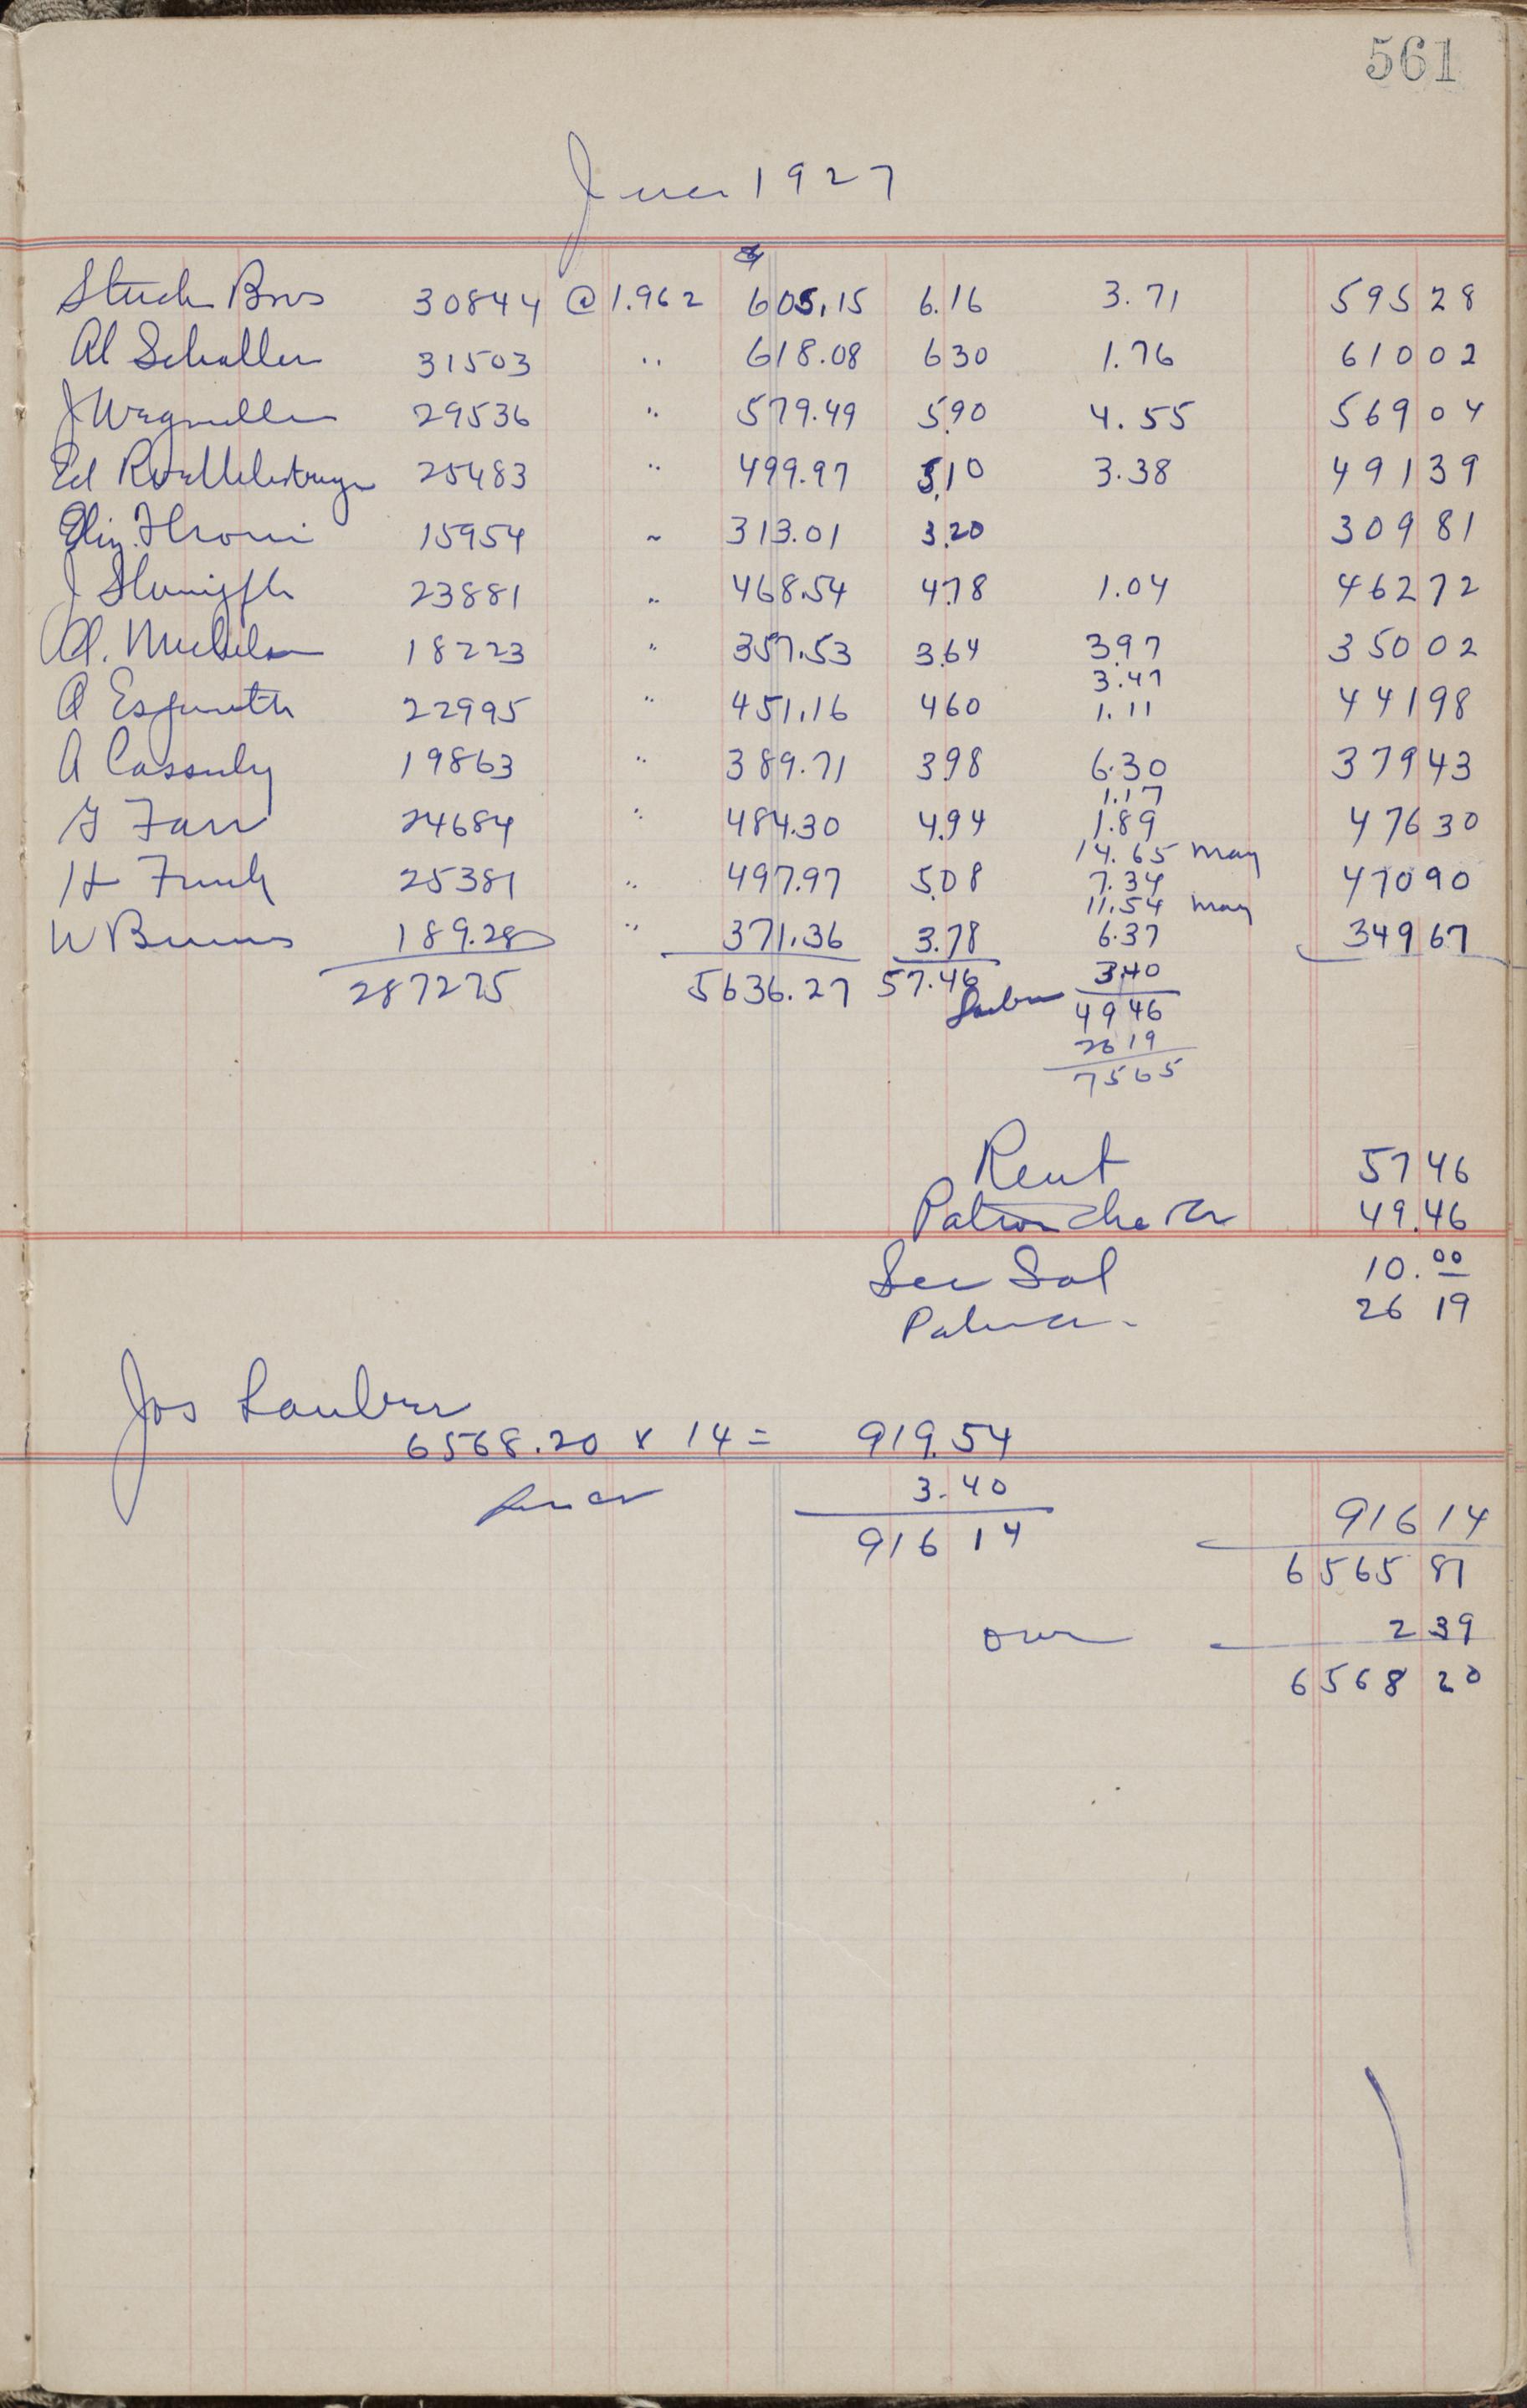 561
June 1927
Bros 30844 @ 1.962 605.15 6.16 3.71 595 28
Al Schaller 31503 " 618.08 6 30 1.76 610 02
J Wagmuller 29536 " 579.49 5.90 4.55 569 04
Ed 25483 " 499.97 5.10 3.38 491 39
Eliz. 15954 " 313.01 3.20 309 81
J 23881 " 468.54 4.78 1.04 462 72
Al. 18223 " 357.53 3.64 3.97 350 02
3.47
A 22995 " 451.16 4 60 1.11 441 98
A 19863 " 389.71 3 98 6.30 379 43
1.17
G Farr 24684 " 484.30 4.94 1.89 476 30
14.65 May
H Funk 25381 " 497.97 5.08 7.34 470 90
11.54 May
W Burns 189.28 " 371.36 3.78 6.37 349 67
287275 5636.27 57.46 Lauber 3.40
49 46
26 19
75 65
Rent 57 46
Patron 49.46
Sec Sal 10.00
26 19
Jos Lauber
6568.20 x 14 = 919.54
3.40
916 14 916 14
6565 81
over 2 39
6568 20